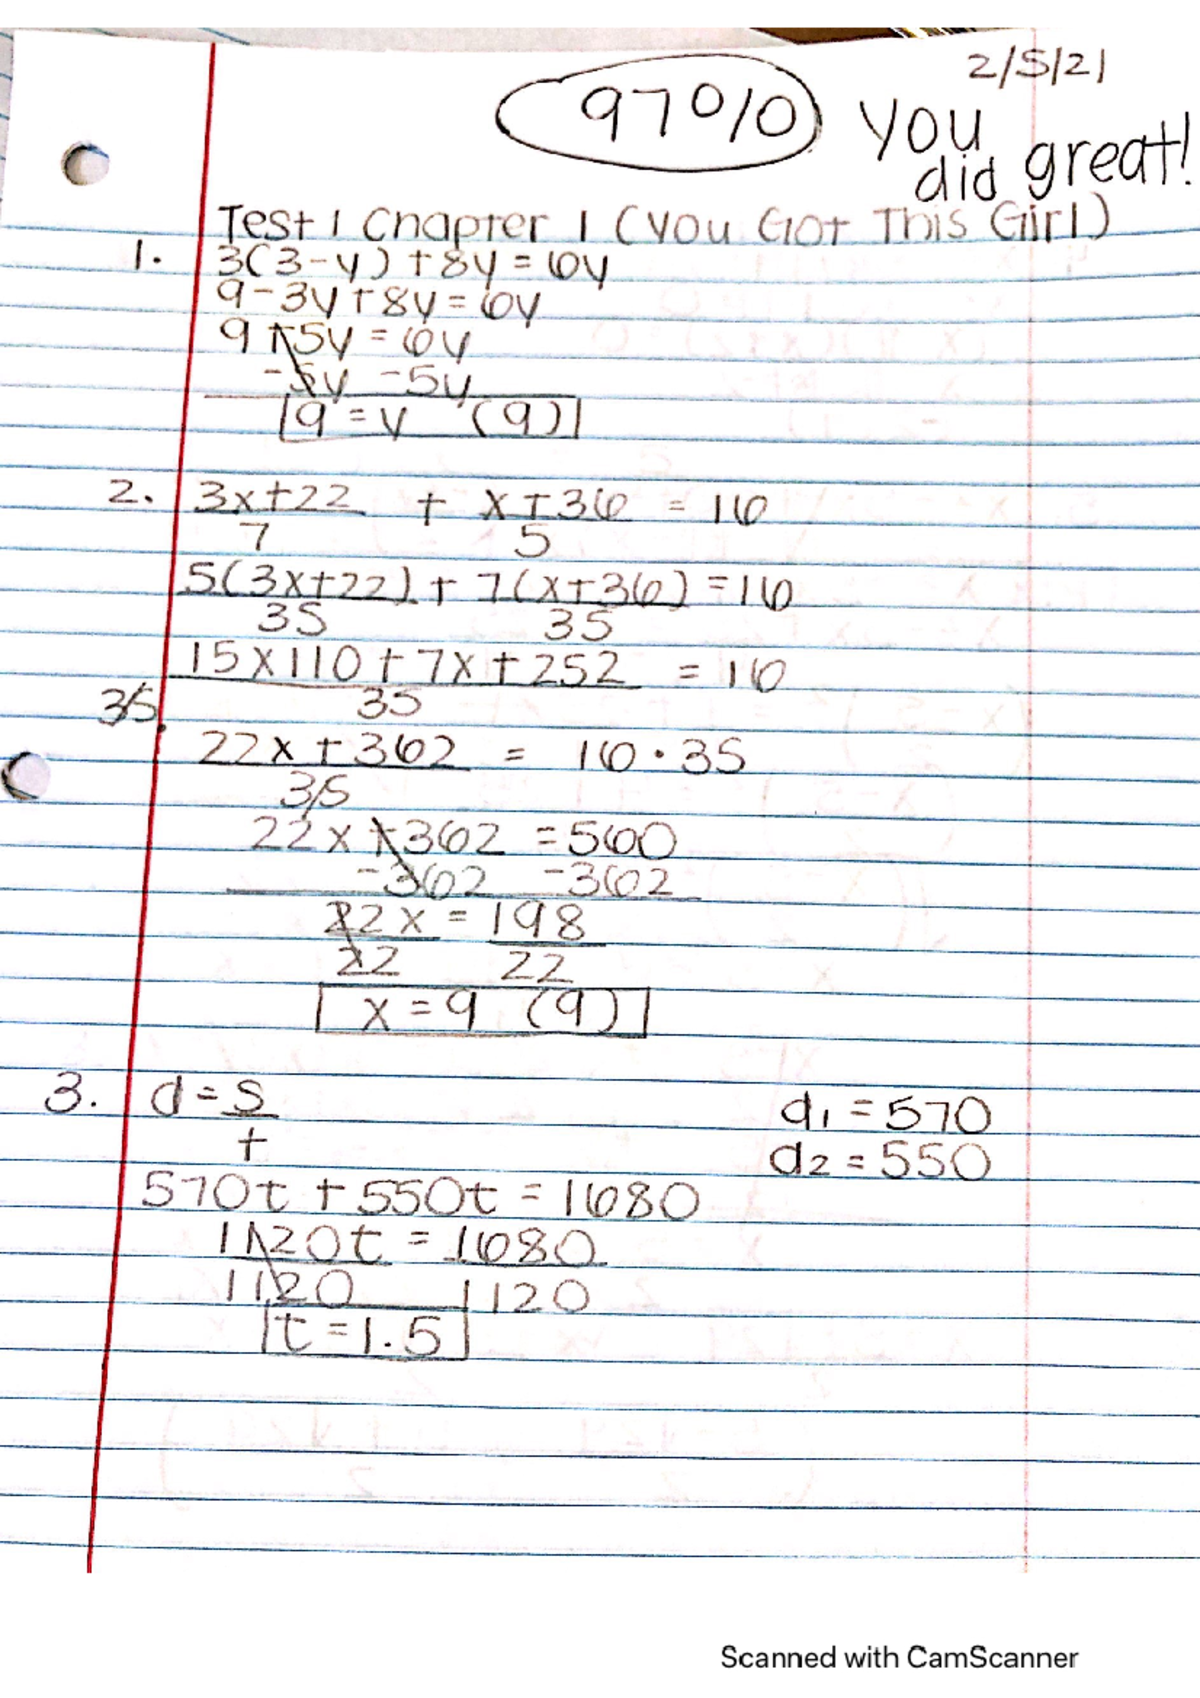 2/5/21
97% You
did great!
Test 1 Chapter 1 (You Got This Girl)
1. 3(3-y)+8y=6y
9-3y+8y=6y
9+5y=6y
-5y -5y
9=y (9)
2. 3x+22 + x+36 = 16
7 5
5(3x+22)+7(x+36)=16
35 35
15x110+7x+252 = 16
35. 35
22x+362 = 16·35
35
22x+362=560
-362 -362
22x=198
22 22
x=9 (9)
3. d=s d1=570
t d2=550
570t+550t=1680
1120t=1680
1120 1120
t=1.5
Scanned with CamScanner